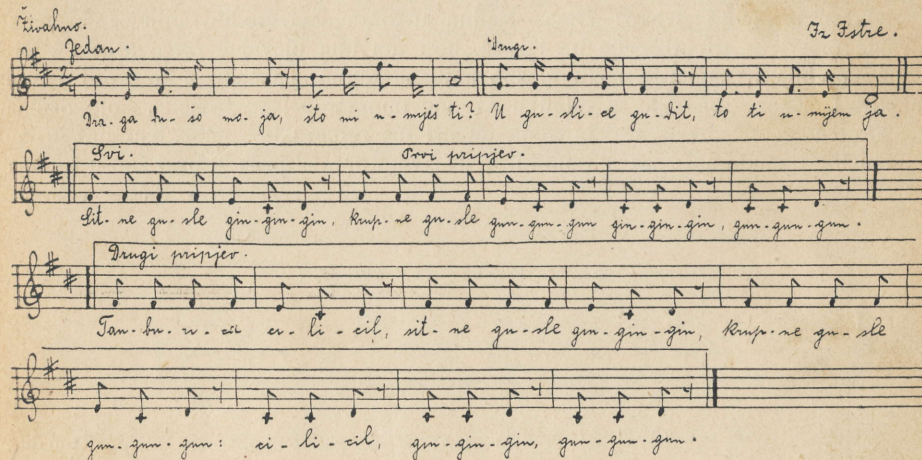 Živahno.
Jedan. Drugi. Iz Istre.
2/4
Dra-ga du-šo mo-ja, što mi u-miješ ti? U gu-sli-ce gu-dit, to ti u-mijem ja.
Svi. Prvi pripjev.
Sit-ne gu-sle gin-gin-gin, krup-ne gu-sle gun-gun-gun gin-gin-gin, gun-gun-gun.
Drugi pripjev.
Tam-bu-ri-ci ci-li-cil, sit-ne gu-sle gin-gin-gin, krup-ne gu-sle
gun-gun-gun: ci-li-cil, gin-gin-gin, gun-gun-gun.